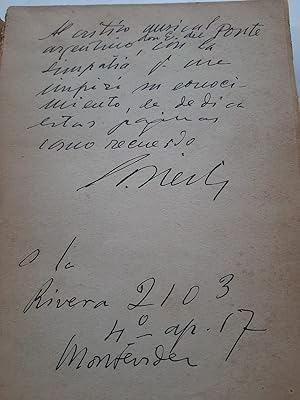 Al crítico musical
argentino, don E. del Ponte
con la
simpatía q me
inspiró su conoci-
miento, le dedica
estas páginas
como recuerdo
s/c
Rivera 2103
4º ap. 17
Montevideo